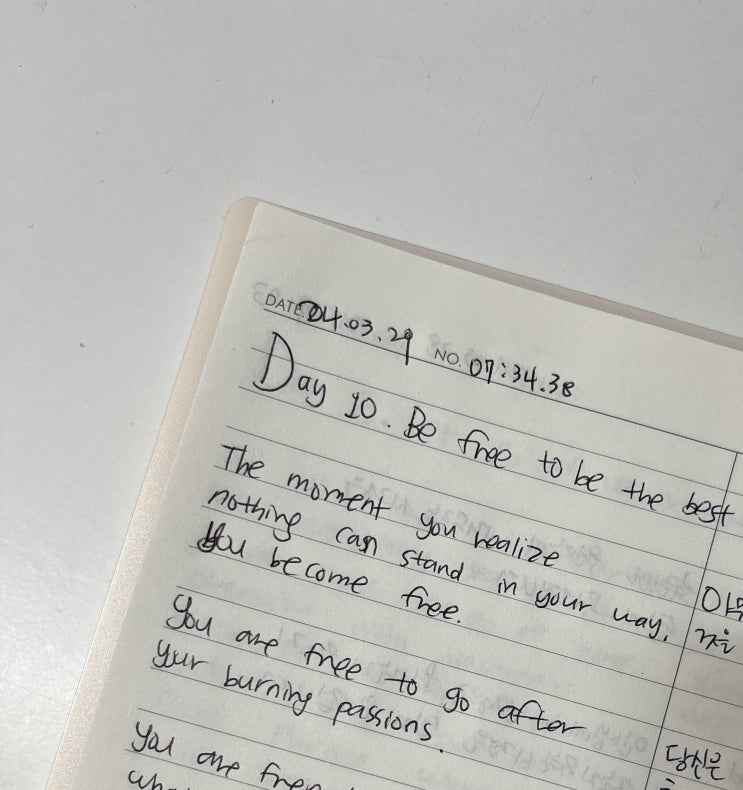 DATE. 24.03.29 NO. 07:34.38
Day 10. Be free to be the best
The moment you realize
nothing can stand in your way,
you become free.
You are free to go after
your burning passions.
당신은
You are free